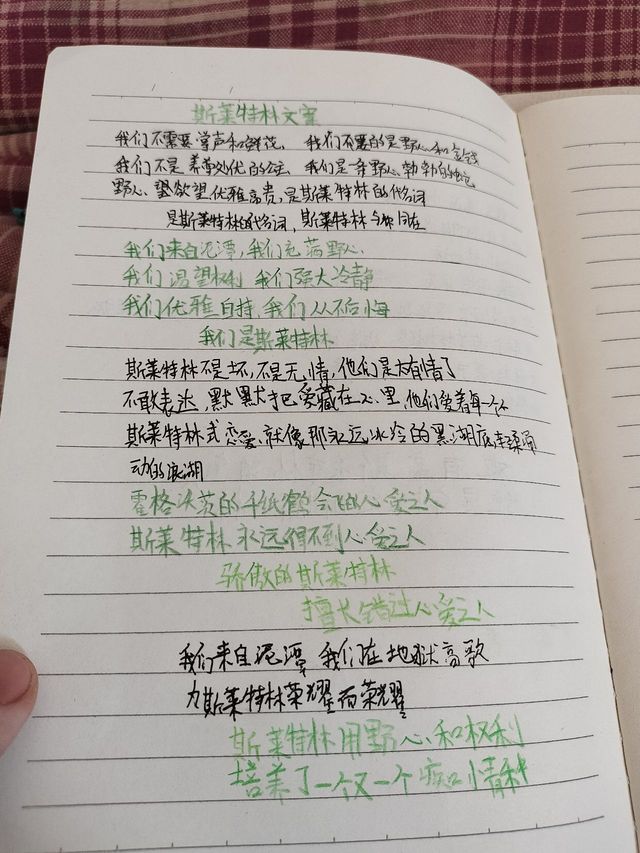 斯莱特林文案
我们不需要掌声和鲜花, 我们需要的是野心和金钱
我们不是养尊处优的公主 我们是一条野心勃勃的蛇
野心、望欲望优雅高贵,是斯莱特林的代名词
是斯莱特林的代名词,斯莱特林与你同在
我们来自泥潭,我们充满野心、
我们渴望权利 我们强大冷静
我们优雅自持,我们从不后悔
我们是斯莱特林
斯莱特林不是坏,不是无情,他们是太有情了
不敢表达,默默把爱藏在心里,他们爱着每一个
斯莱特林式恋爱、就像那永远冰冷的黑湖底轻柔涌
动的浪潮
霍格沃茨的千纸鹤会飞向心爱之人
斯莱特林永远得不到心爱之人
骄傲的斯莱特林
擅长错过心爱之人
我们来自泥潭 我们在地狱高歌
为斯莱特林荣耀而荣耀
斯莱特林用野心和权利
培养了一个又一个痴情种